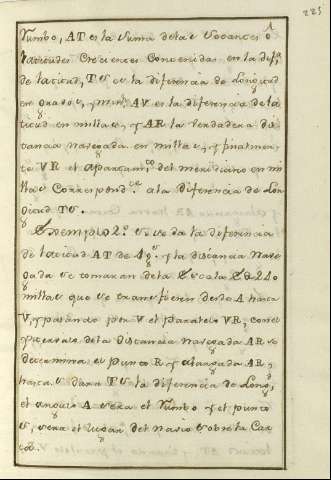 225
Rumbo, AT es la suma de las secantes ó
latitudes Crecientes Contenidas en la difª.
de latitud, TS es la diferencia de Longitud
en grados, y min.s AV es la diferencia de la
titud en millas, y AR la verdadera dis
tancia navegada en millas, y finalmen
te VR el apartam.to del meridiano en mi
llas Correspond.te a la diferencia de Lon
gitud TS.
Exemplo 2º. si se da la diferencia
de latitud AT de 4 g.s y la distancia nave
gada se tomaran de la Escala 240
millas que se transfieren desde A hasta
V, y pasando por V el paralelo VR, con el
de la distancia navegada AR se
determina el punto R y alargada AR,
hasta S dara TS la diferencia de Long.d
el angulo A sera el Rumbo y el punto
S, sera el lugar del navio sobre la Car
ta.